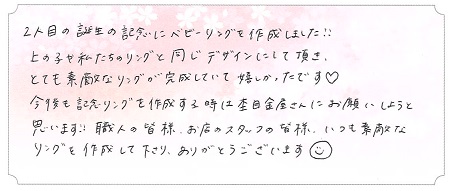 2人目の誕生の記念にベビーリングを作成しました!!
上の子や私たちのリングと同じデザインにして頂き、
とても素敵なリングが完成していて嬉しかったです♡
今後も記念リングを作成する時は杢目金屋さんにお願いしようと
思います!! 職人の皆様、お店のスタッフの皆様、いつも素敵な
リングを作成して下さり、ありがとうございます☺